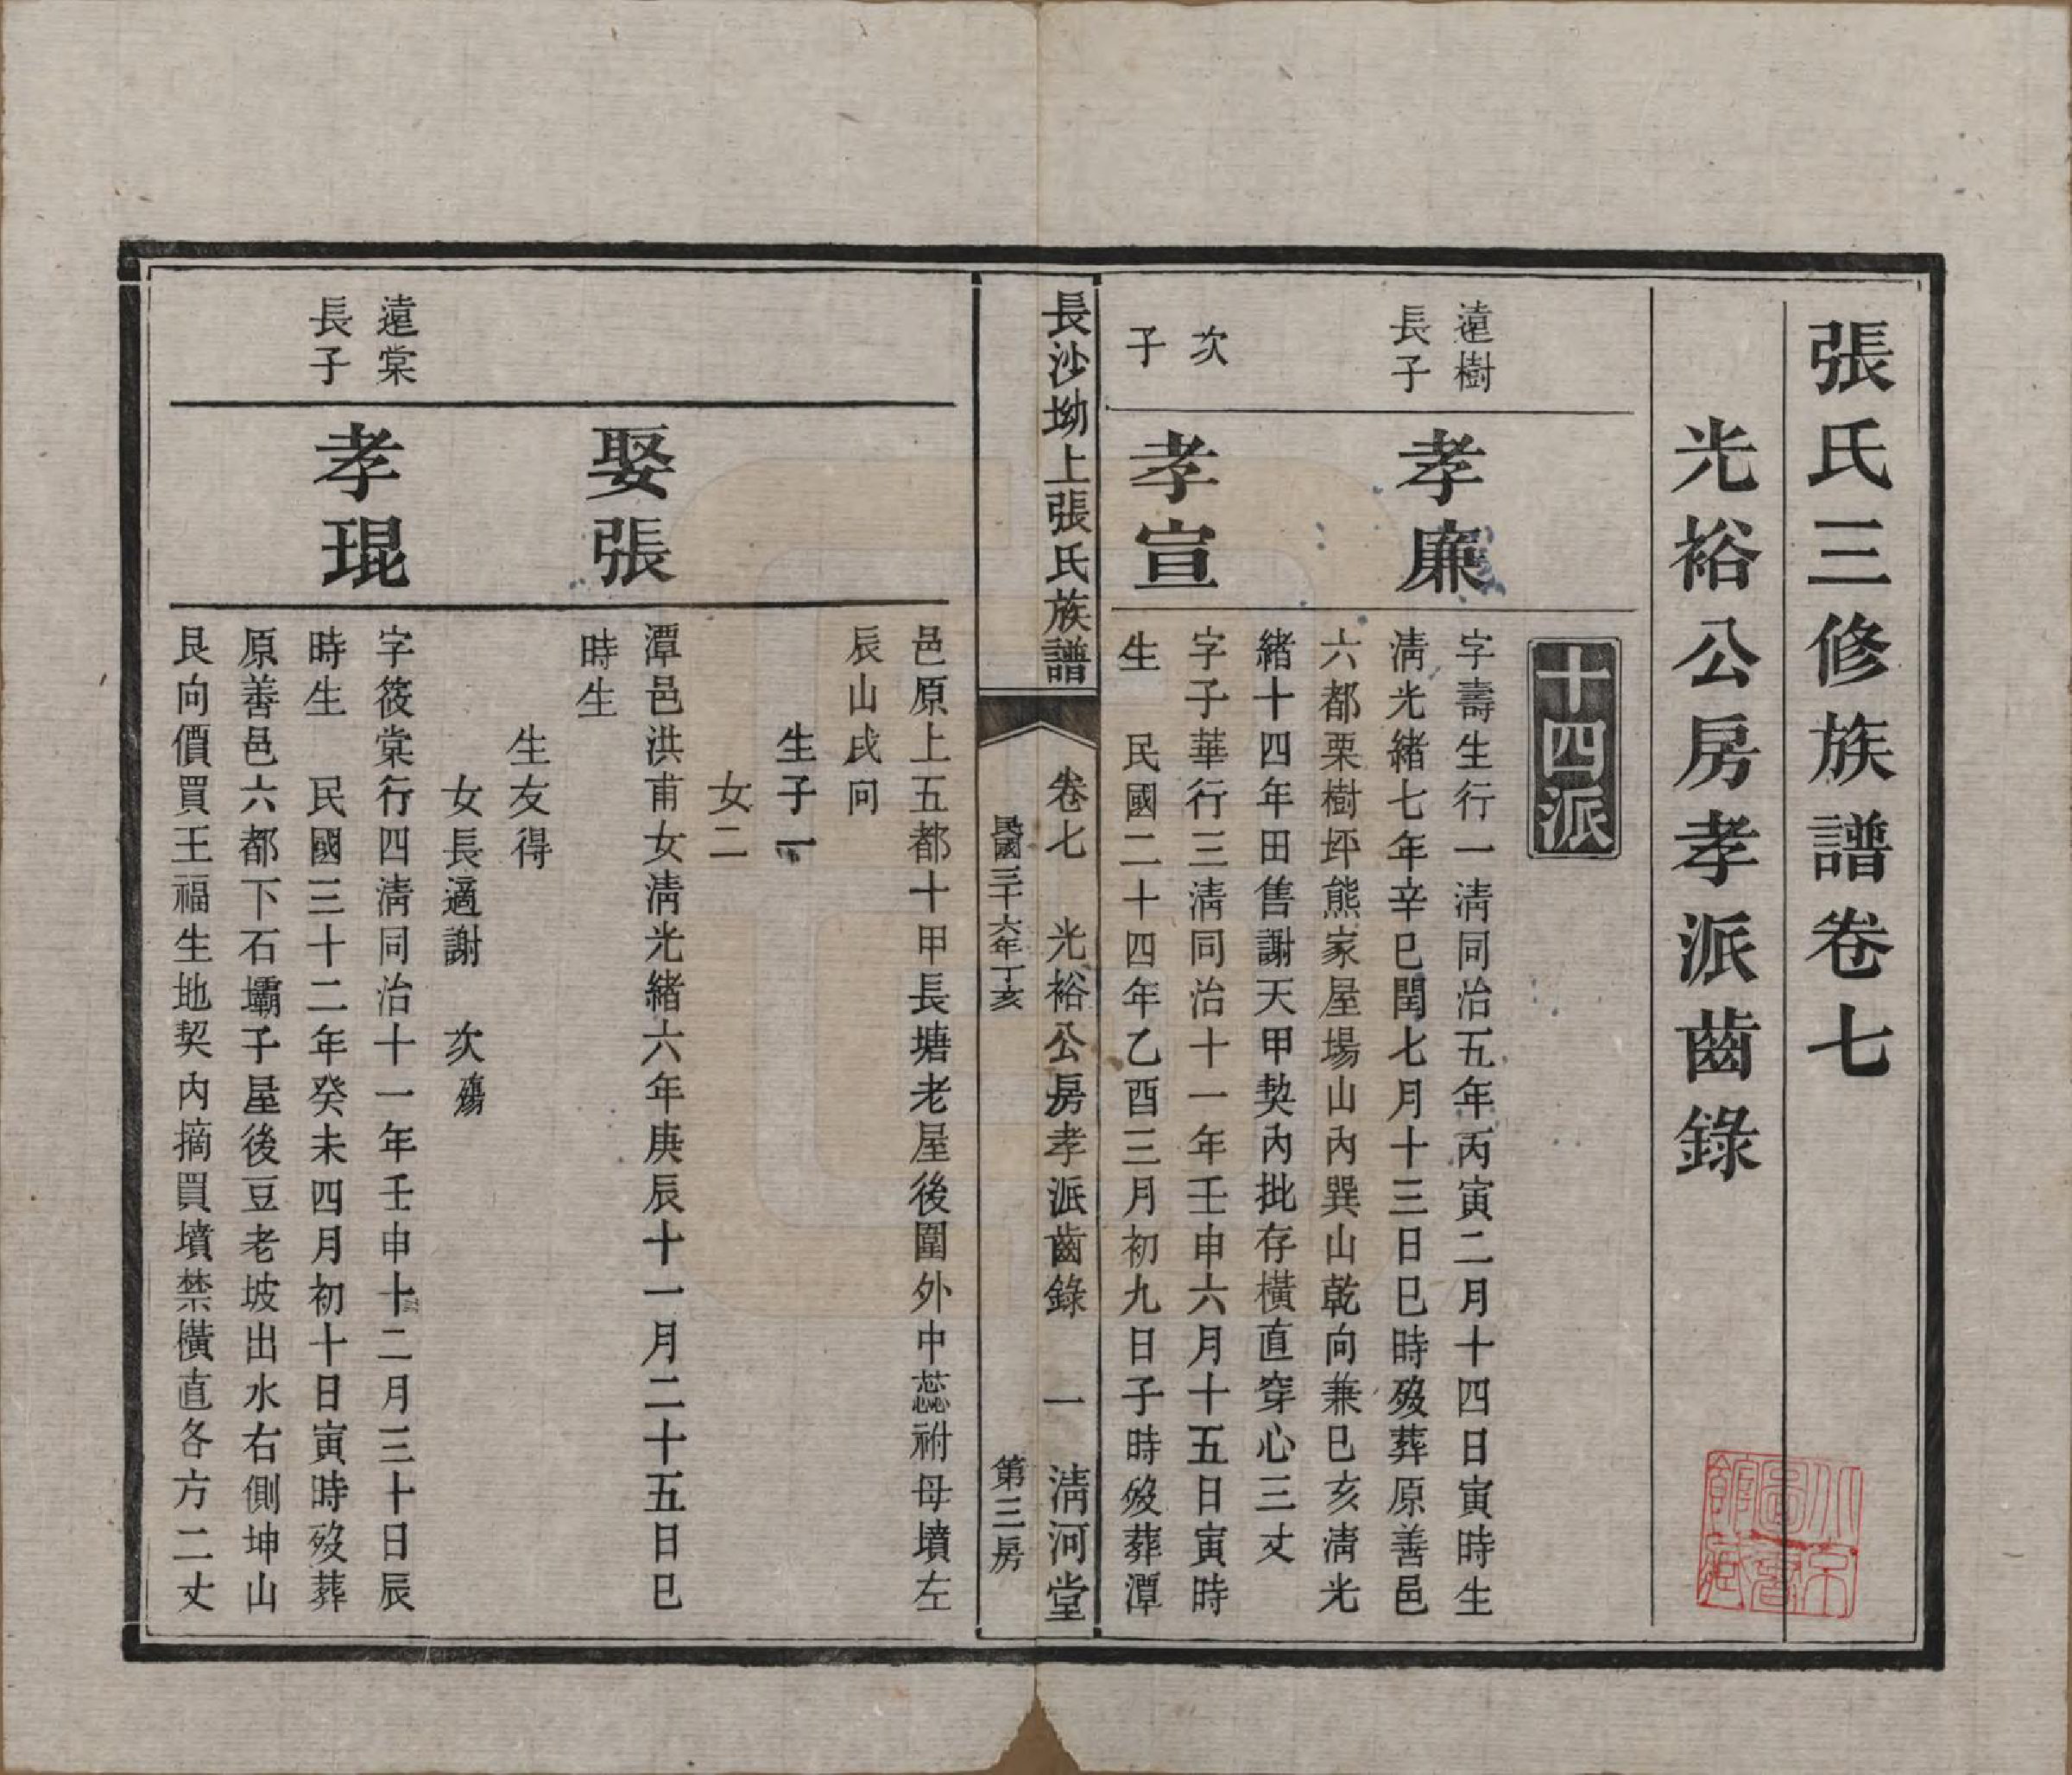 張氏三修族譜卷七
光裕公房孝派齒錄
十四派
遠樹
長子
孝廉
字壽生行一淸同治五年丙寅二月十四日寅時生
淸光緒七年辛巳閏七月十三日巳時歿葬原善邑
六都栗樹坪熊家屋場山內巽山乾向兼巳亥淸光
緒十四年田售謝天甲契內批存橫直穿心三丈
次
子
孝宣
字子華行三淸同治十一年壬申六月十五日寅時
生　民國二十四年乙酉三月初九日子時歿葬潭
長沙坳上張氏族譜
卷七　光裕公房孝派齒錄　一　淸河堂
民國三十六年丁亥
第三房
邑原上五都十甲長塘老屋後圍外中蕊祔母墳左
辰山戌向
生子一
女二
娶張
潭邑洪甫女淸光緒六年庚辰十一月二十五日巳
時生
生友得
女長適謝　次殤
遠棠
長子
孝琨
字筱棠行四淸同治十一年壬申十二月三十日辰
時生　民國三十二年癸未四月初十日寅時歿葬
原善邑六都下石壩子屋後豆老坡出水右側坤山
艮向價買王福生地契內摘買墳禁橫直各方二丈
北京
圖書
館藏